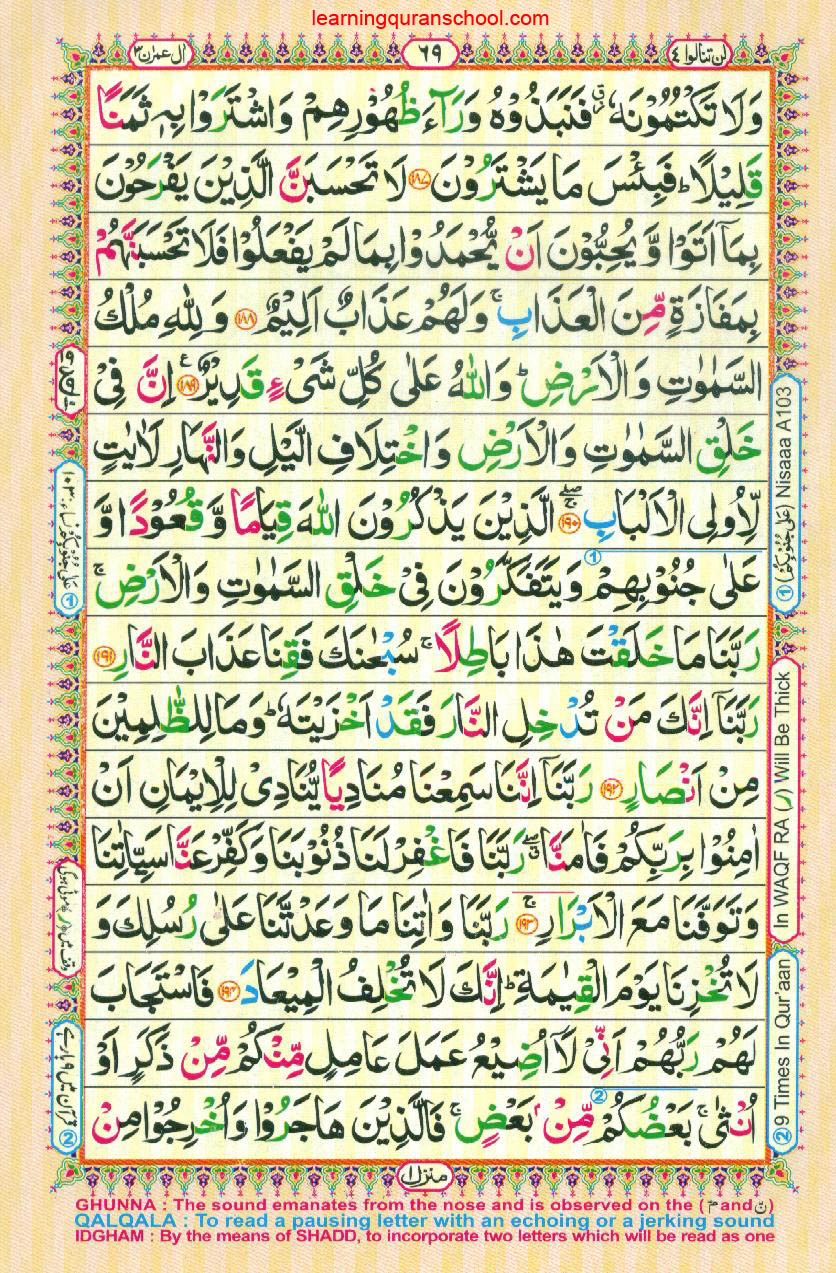 learningquranschool.com
لن تنالوا ٤
٦٩
ال عمرٰن ٣
وَلَا تَكْتُمُوْنَهٗ ز فَنَبَذُوْهُ وَرَآءَ ظُهُوْرِهِمْ وَاشْتَرَوْا بِهٖ ثَمَنًا
قَلِيْلًا ؕ فَبِئْسَ مَا يَشْتَرُوْنَ ﴿۱۸۷﴾ لَا تَحْسَبَنَّ الَّذِيْنَ يَفْرَحُوْنَ
بِمَاۤ اَتَوْا وَّ يُحِبُّوْنَ اَنْ يُّحْمَدُوْا بِمَا لَمْ يَفْعَلُوْا فَلَا تَحْسَبَنَّهُمْ
بِمَفَازَةٍ مِّنَ الْعَذَابِ ۚ وَلَهُمْ عَذَابٌ اَلِيْمٌ ﴿۱۸۸﴾ وَ لِلّٰهِ مُلْكُ
السَّمٰوٰتِ وَ الْاَرْضِ ؕ وَاللّٰهُ عَلٰى كُلِّ شَىْءٍ قَدِيْرٌ ﴿۱۸۹﴾ اِنَّ فِىْ
خَلْقِ السَّمٰوٰتِ وَالْاَرْضِ وَاخْتِلَافِ الَّيْلِ وَالنَّهَارِ لَاٰيٰتٍ
لِّاُولِى الْاَلْبَابِ ﴿۱۹۰﴾ الَّذِيْنَ يَذْكُرُوْنَ اللّٰهَ قِيَامًا وَّ قُعُوْدًا وَّ
عَلٰى جُنُوْبِهِمْ وَيَتَفَكَّرُوْنَ فِىْ خَلْقِ السَّمٰوٰتِ وَالْاَرْضِ ۚ
رَبَّنَا مَا خَلَقْتَ هٰذَا بَاطِلًا ۚ سُبْحٰنَكَ فَقِنَا عَذَابَ النَّارِ ﴿۱۹۱﴾
رَبَّنَاۤ اِنَّكَ مَنْ تُدْخِلِ النَّارَ فَقَدْ اَخْزَيْتَهٗ ؕ وَمَا لِلظّٰلِمِيْنَ
مِنْ اَنْصَارٍ ﴿۱۹۲﴾ رَبَّنَاۤ اِنَّنَا سَمِعْنَا مُنَادِيًا يُّنَادِىْ لِلْاِيْمَانِ اَنْ
اٰمِنُوْا بِرَبِّكُمْ فَاٰمَنَّا ۖ رَبَّنَا فَاغْفِرْ لَنَا ذُنُوْبَنَا وَكَفِّرْ عَنَّا سَيِّاٰتِنَا
وَتَوَفَّنَا مَعَ الْاَبْرَارِ ﴿۱۹۳﴾ رَبَّنَا وَاٰتِنَا مَا وَعَدْتَّنَا عَلٰى رُسُلِكَ وَ
لَا تُخْزِنَا يَوْمَ الْقِيٰمَةِ ؕ اِنَّكَ لَا تُخْلِفُ الْمِيْعَادَ ﴿۱۹۴﴾ فَاسْتَجَابَ
لَهُمْ رَبُّهُمْ اَنِّىْ لَاۤ اُضِيْعُ عَمَلَ عَامِلٍ مِّنْكُمْ مِّنْ ذَكَرٍ اَوْ
اُنْثٰى ۚ بَعْضُكُمْ مِّنْۢ بَعْضٍ ۚ فَالَّذِيْنَ هَاجَرُوْا وَاُخْرِجُوْا مِنْ
① (عَلٰى جُنُوْبِكُمْ) Nisaaa A103
In WAQF RA (ر) Will Be Thick
② 9 Times In Qur'aan
منزل ١
GHUNNA : The sound emanates from the nose and is observed on the (مّ and نّ)
QALQALA : To read a pausing letter with an echoing or a jerking sound
IDGHAM : By the means of SHADD, to incorporate two letters which will be read as one